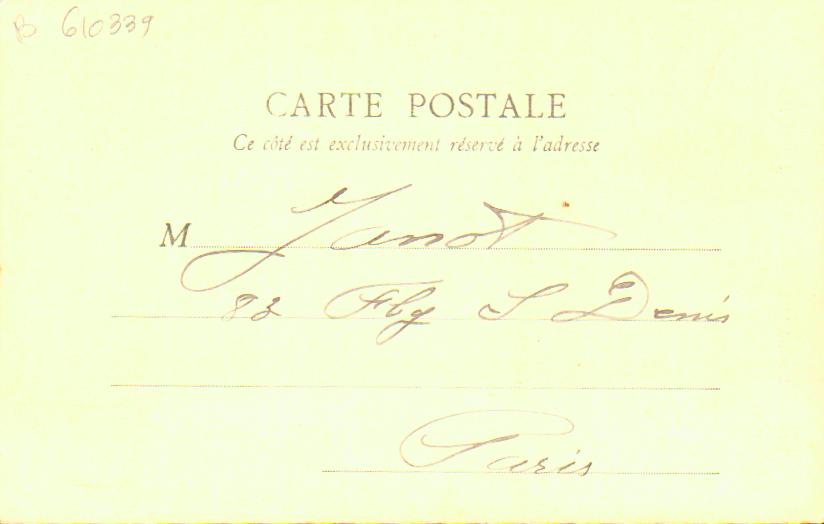 B 610339
CARTE POSTALE
Ce côté est exclusivement réservé à l'adresse
M Janot
83 Fbg S Denis
Paris